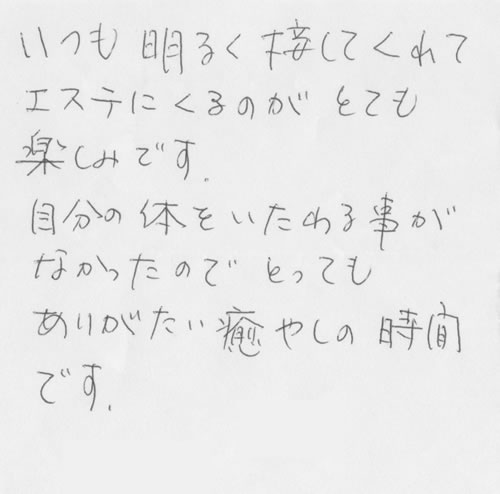 いつも 明るく 接してくれて
エステにくるのが とても
楽しみです.
自分の体をいたわる事が
なかったので とっても
ありがたい癒やしの 時間
です.